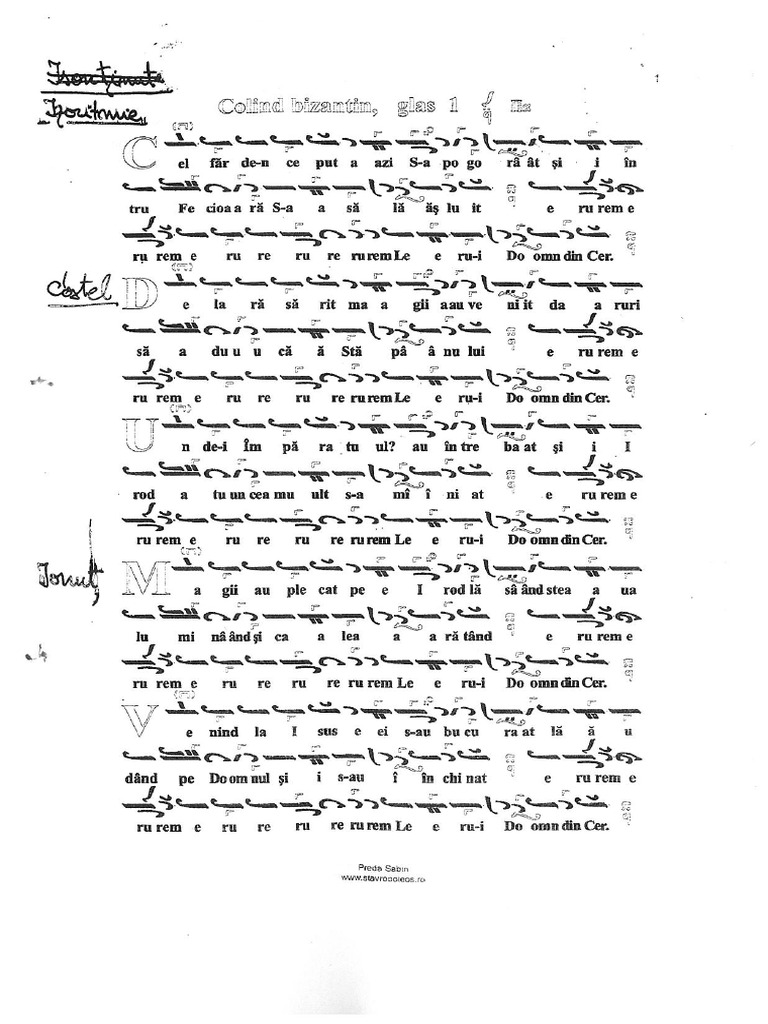 Isonţinute
Isoritmie
1
Colind bizantin, glas 1 Πα
C el făr de-n ce put a azi S-a po go râ ât şi i în
tru Fe cioa a ră S-a a să lă ăş lu it e ru rem e
ru rem e ru re ru re ru rem Le e ru-i Do omn din Cer.
Costel
D e la ră să rit ma a gii a au ve ni it da a ruri
să a du u u că ă Stă pâ â nu lui e ru rem e
ru rem e ru re ru re ru rem Le e ru-i Do omn din Cer.
U n de-i Îm pă ra tu ul? au în tre ba at şi i I
rod a tu un cea mu ult s-a mî î ni at e ru rem e
ru rem e ru re ru re ru rem Le e ru-i Do omn din Cer.
Ionuţ
M a gii au ple cat pe e I rod lă sâ ând stea a ua
lu mi nâ ând şi ca a lea a a ră tând e ru rem e
ru rem e ru re ru re ru rem Le e ru-i Do omn din Cer.
V e nind la I sus e ei s-au bu cu ra at lă ă u
dând pe Do om nul şi i s-au î în chi nat e ru rem e
ru rem e ru re ru re ru rem Le e ru-i Do omn din Cer.
Preda Sabin
www.stavropoleos.ro